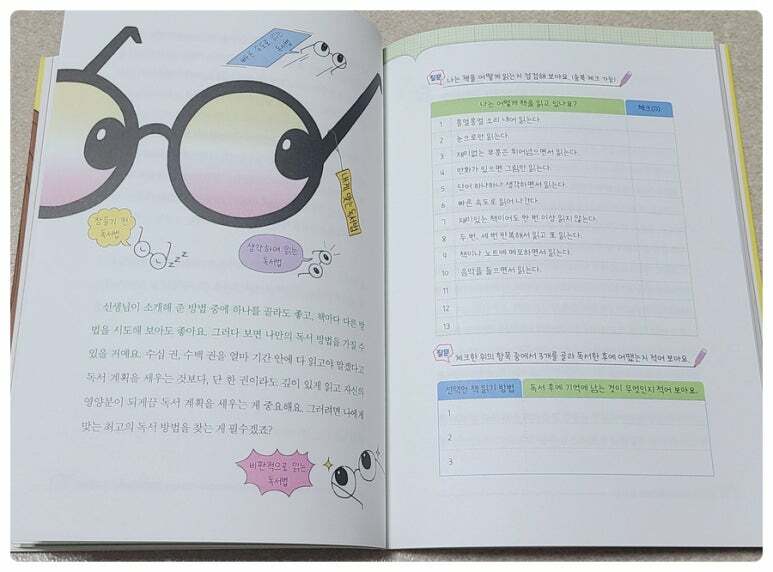 빠른 속도로 읽는
독서법
내게 맞는 독서법
잠들기 전
독서법
zzz
생각하며 읽는
독서법
선생님이 소개해 준 방법 중에 하나를 골라도 좋고, 책마다 다른 방
법을 시도해 보아도 좋아요. 그러다 보면 나만의 독서 방법을 가질 수
있을 거예요. 수십 권, 수백 권을 얼마 기간 안에 다 읽고야 말겠다고
독서 계획을 세우는 것보다, 단 한 권이라도 깊이 있게 읽고 자신의
영양분이 되게끔 독서 계획을 세우는 게 중요해요. 그러려면 나에게
맞는 최고의 독서 방법을 찾는 게 필수겠죠?
비판적으로 읽는
독서법
질문 나는 책을 어떻게 읽는지 점검해 보아요. (중복 체크 가능)
나는 어떻게 책을 읽고 있나요? 체크(O)
1 흥얼흥얼 소리 내어 읽는다.
2 눈으로만 읽는다.
3 재미없는 부분은 뛰어넘으면서 읽는다.
4 만화가 있으면 그림만 읽는다.
5 단어 하나하나 생각하면서 읽는다.
6 빠른 속도로 읽어 나간다.
7 재미있는 책이어도 한 번 이상 읽지 않는다.
8 두 번, 세 번 반복해서 읽고 또 읽는다.
9 책이나 노트에 메모하면서 읽는다.
10 음악을 들으면서 읽는다.
11
12
13
질문 체크한 위의 항목 중에서 3개를 골라 독서한 후에 어땠는지 적어 보아요.
선택한 책 읽기 방법 독서 후에 기억에 남는 것이 무엇인지 적어 보아요.
1
2
3